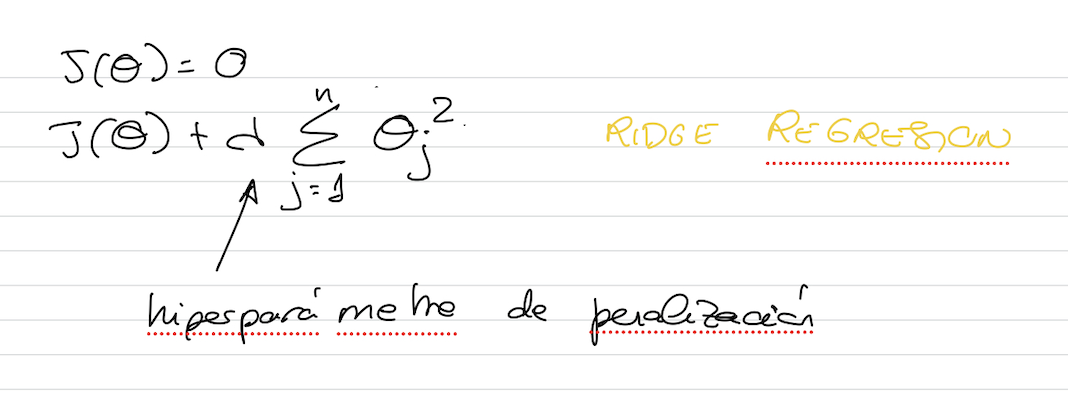 J(θ) = 0
J(θ) + α n Σ j=1 θj² RIDGE REGRESION
hiperparámetro de penalización